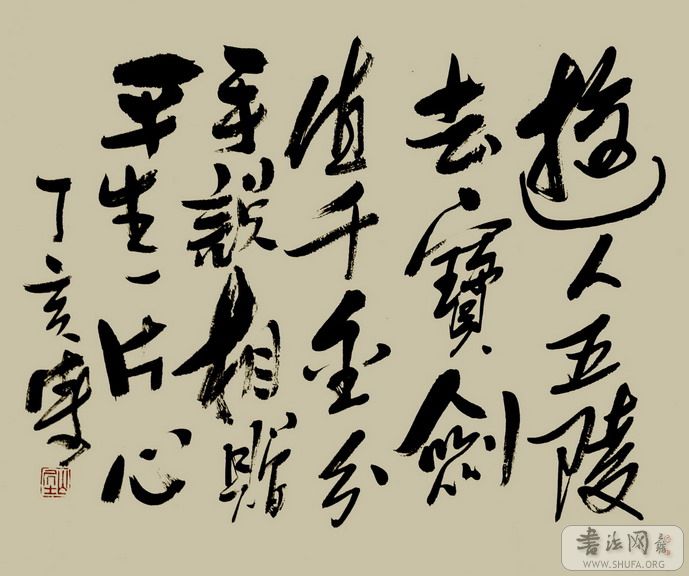 遊人五陵
去寶劍
值千金分
手脫相贈
平生一片心
丁亥
書法网
WWW.SHUFA.ORG